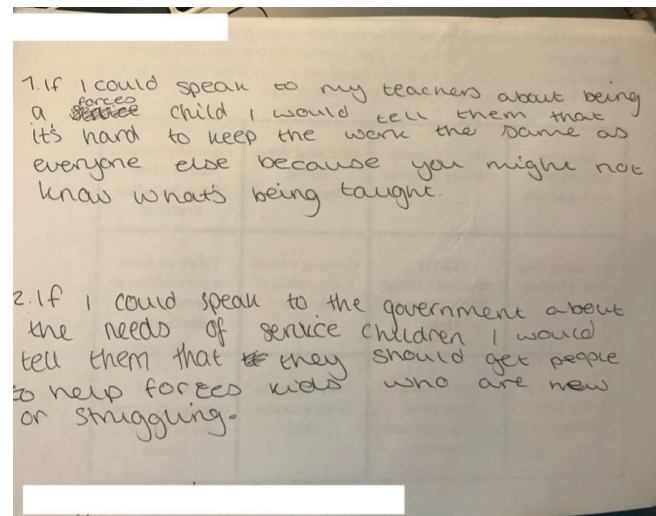 1. If I could speak to my teachers about being
a forces child I would tell them that
it's hard to keep the work the same as
everyone else because you might not
know what's being taught.
2. If I could speak to the government about
the needs of service children I would
tell them that they should get people
to help forces kids who are new
or struggling.